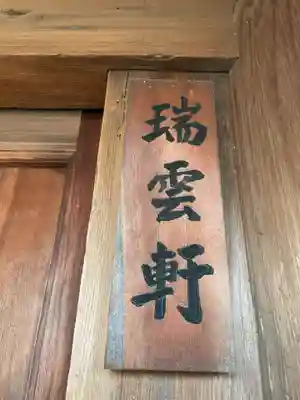 瑞雲軒